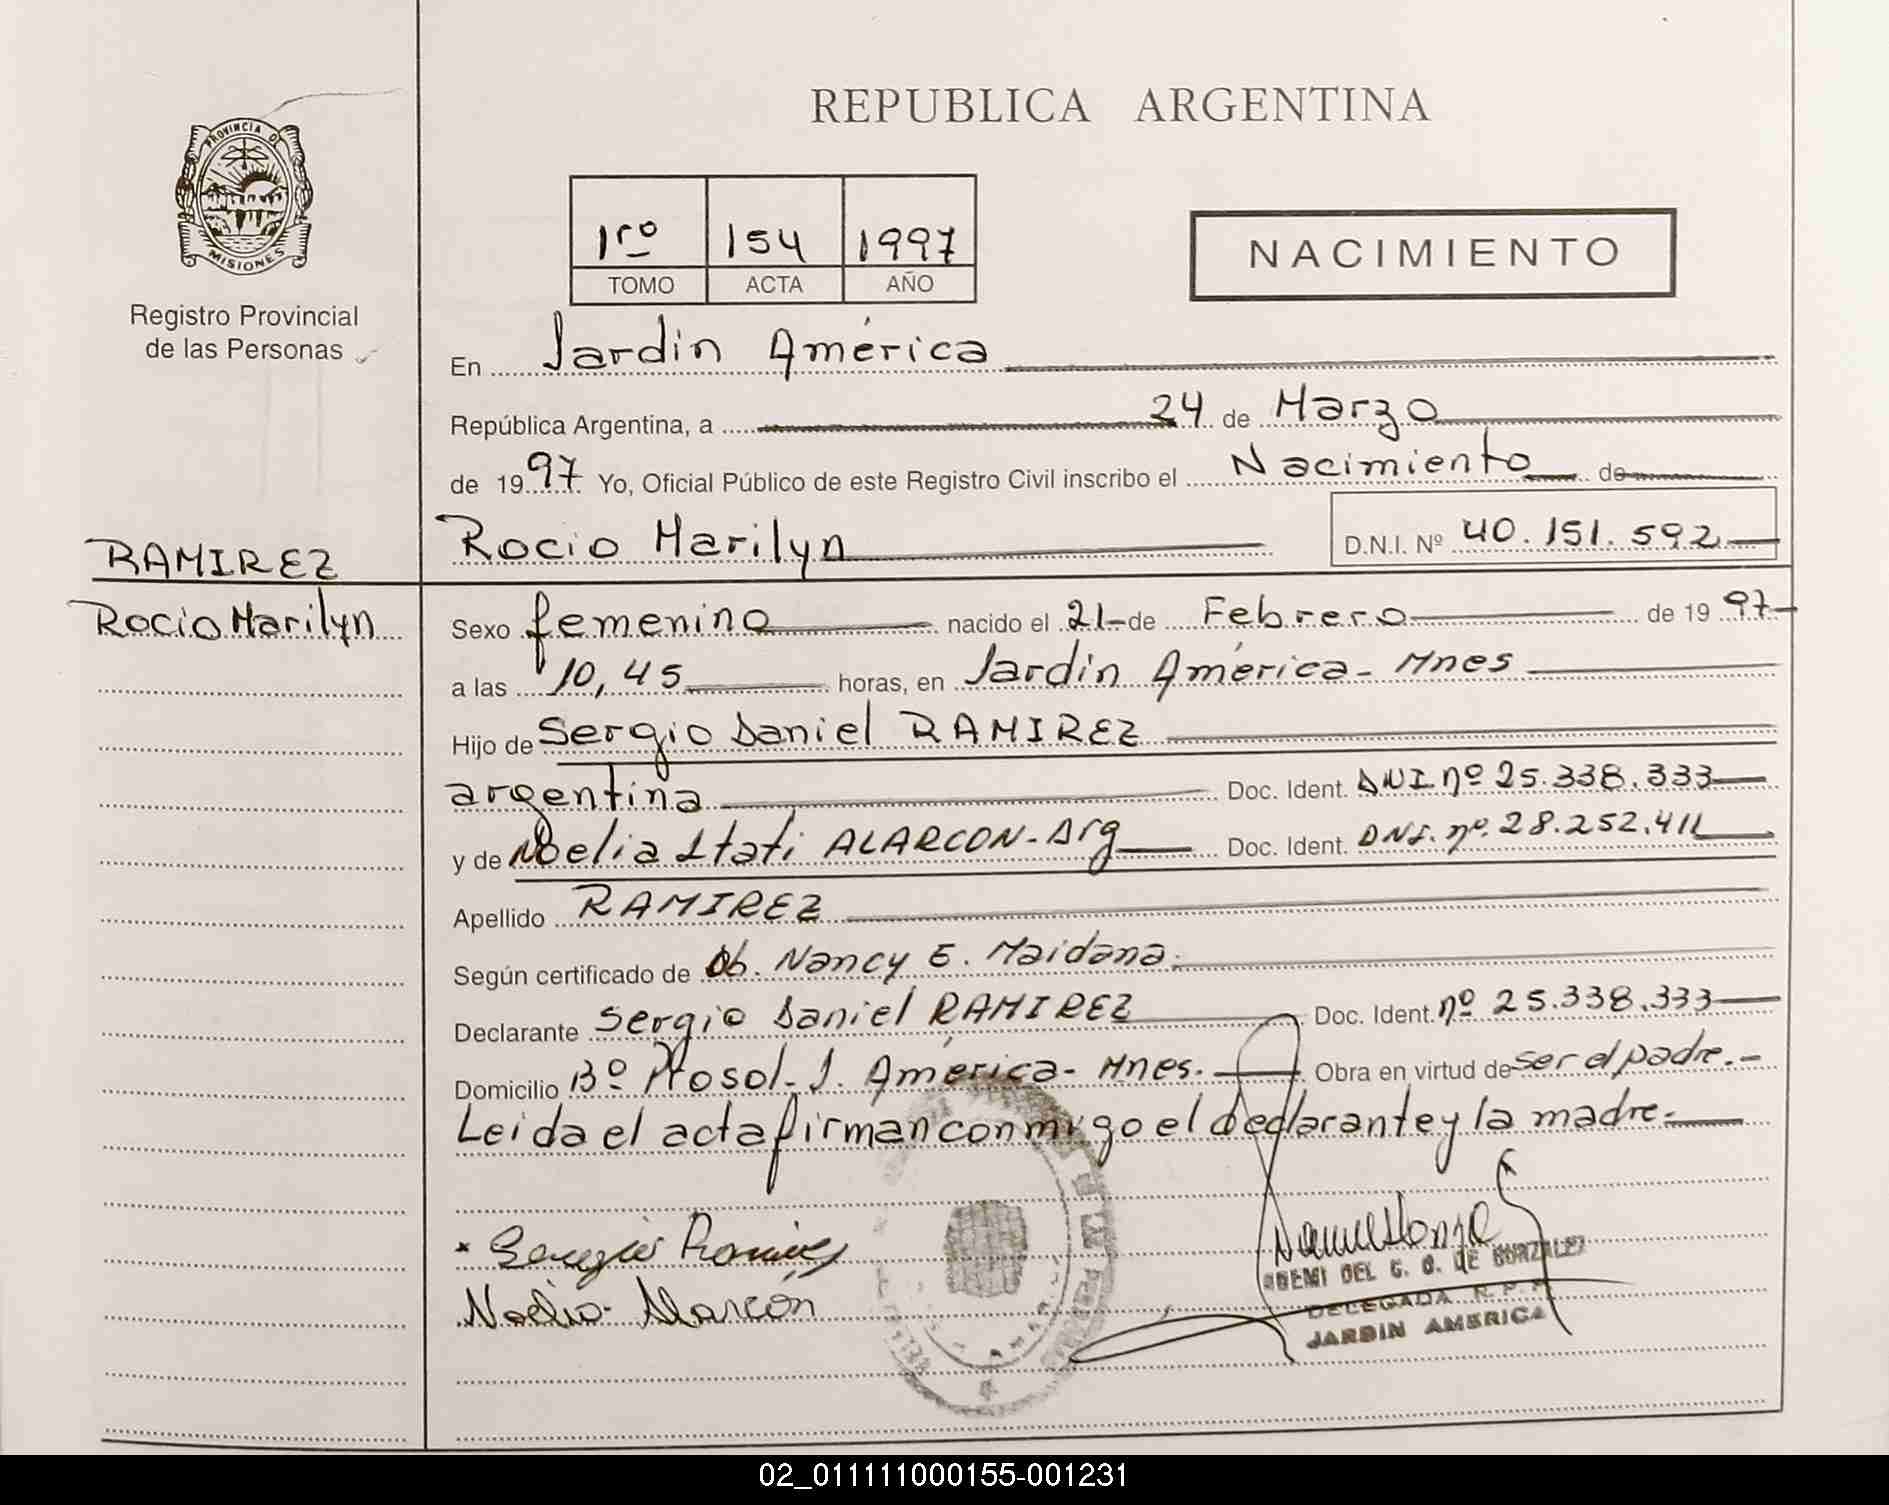 REPUBLICA ARGENTINA
PROVINCIA DE
MISIONES
Registro Provincial
de las Personas
1ro 154 1997
TOMO ACTA AÑO
NACIMIENTO
En Jardin América
República Argentina, a 24 de Marzo
de 1997 Yo, Oficial Público de este Registro Civil inscribo el Nacimiento de
RAMIREZ
Rocio Marilyn D.N.I. Nº 40.151.592
Rocio Marilyn
Sexo femenino nacido el 21 de Febrero de 1997
a las 10,45 horas, en Jardin América - Mnes
Hijo de Sergio Daniel RAMIREZ
argentina Doc. Ident. DNI nº 25.338.333
y de Noelia Itati ALARCON - Arg Doc. Ident. DNI. nº. 28.252.411
Apellido RAMIREZ
Según certificado de Ob. Nancy E. Maidana.
Declarante Sergio Daniel RAMIREZ Doc. Ident. nº 25.338.333
Domicilio Bº Prosol - J. América - Mnes. Obra en virtud de ser el padre. -
Leida el acta firman conmigo el declarante y la madre. -
Sergio Ramirez
Noelia Alarcón
DEL C. G. DE GONZALEZ
DELEGADA R. P. P.
JARDIN AMERICA
02_011111000155-001231